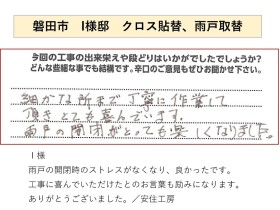 磐田市　I様邸　クロス貼替、雨戸取替
今回の工事の出来栄えや段どりはいかがでしたでしょうか？
どんな些細な事でも結構です。辛口のご意見もぜひお聞かせ下さい。
細かな所まで丁寧に作業して
頂きとても喜んでいます。
雨戸の開閉がとっても楽しくなりました。
I 様
雨戸の開閉時のストレスがなくなり、良かったです。
工事に喜んでいただけたとのお言葉も励みになります。
ありがとうございました。／安住工房